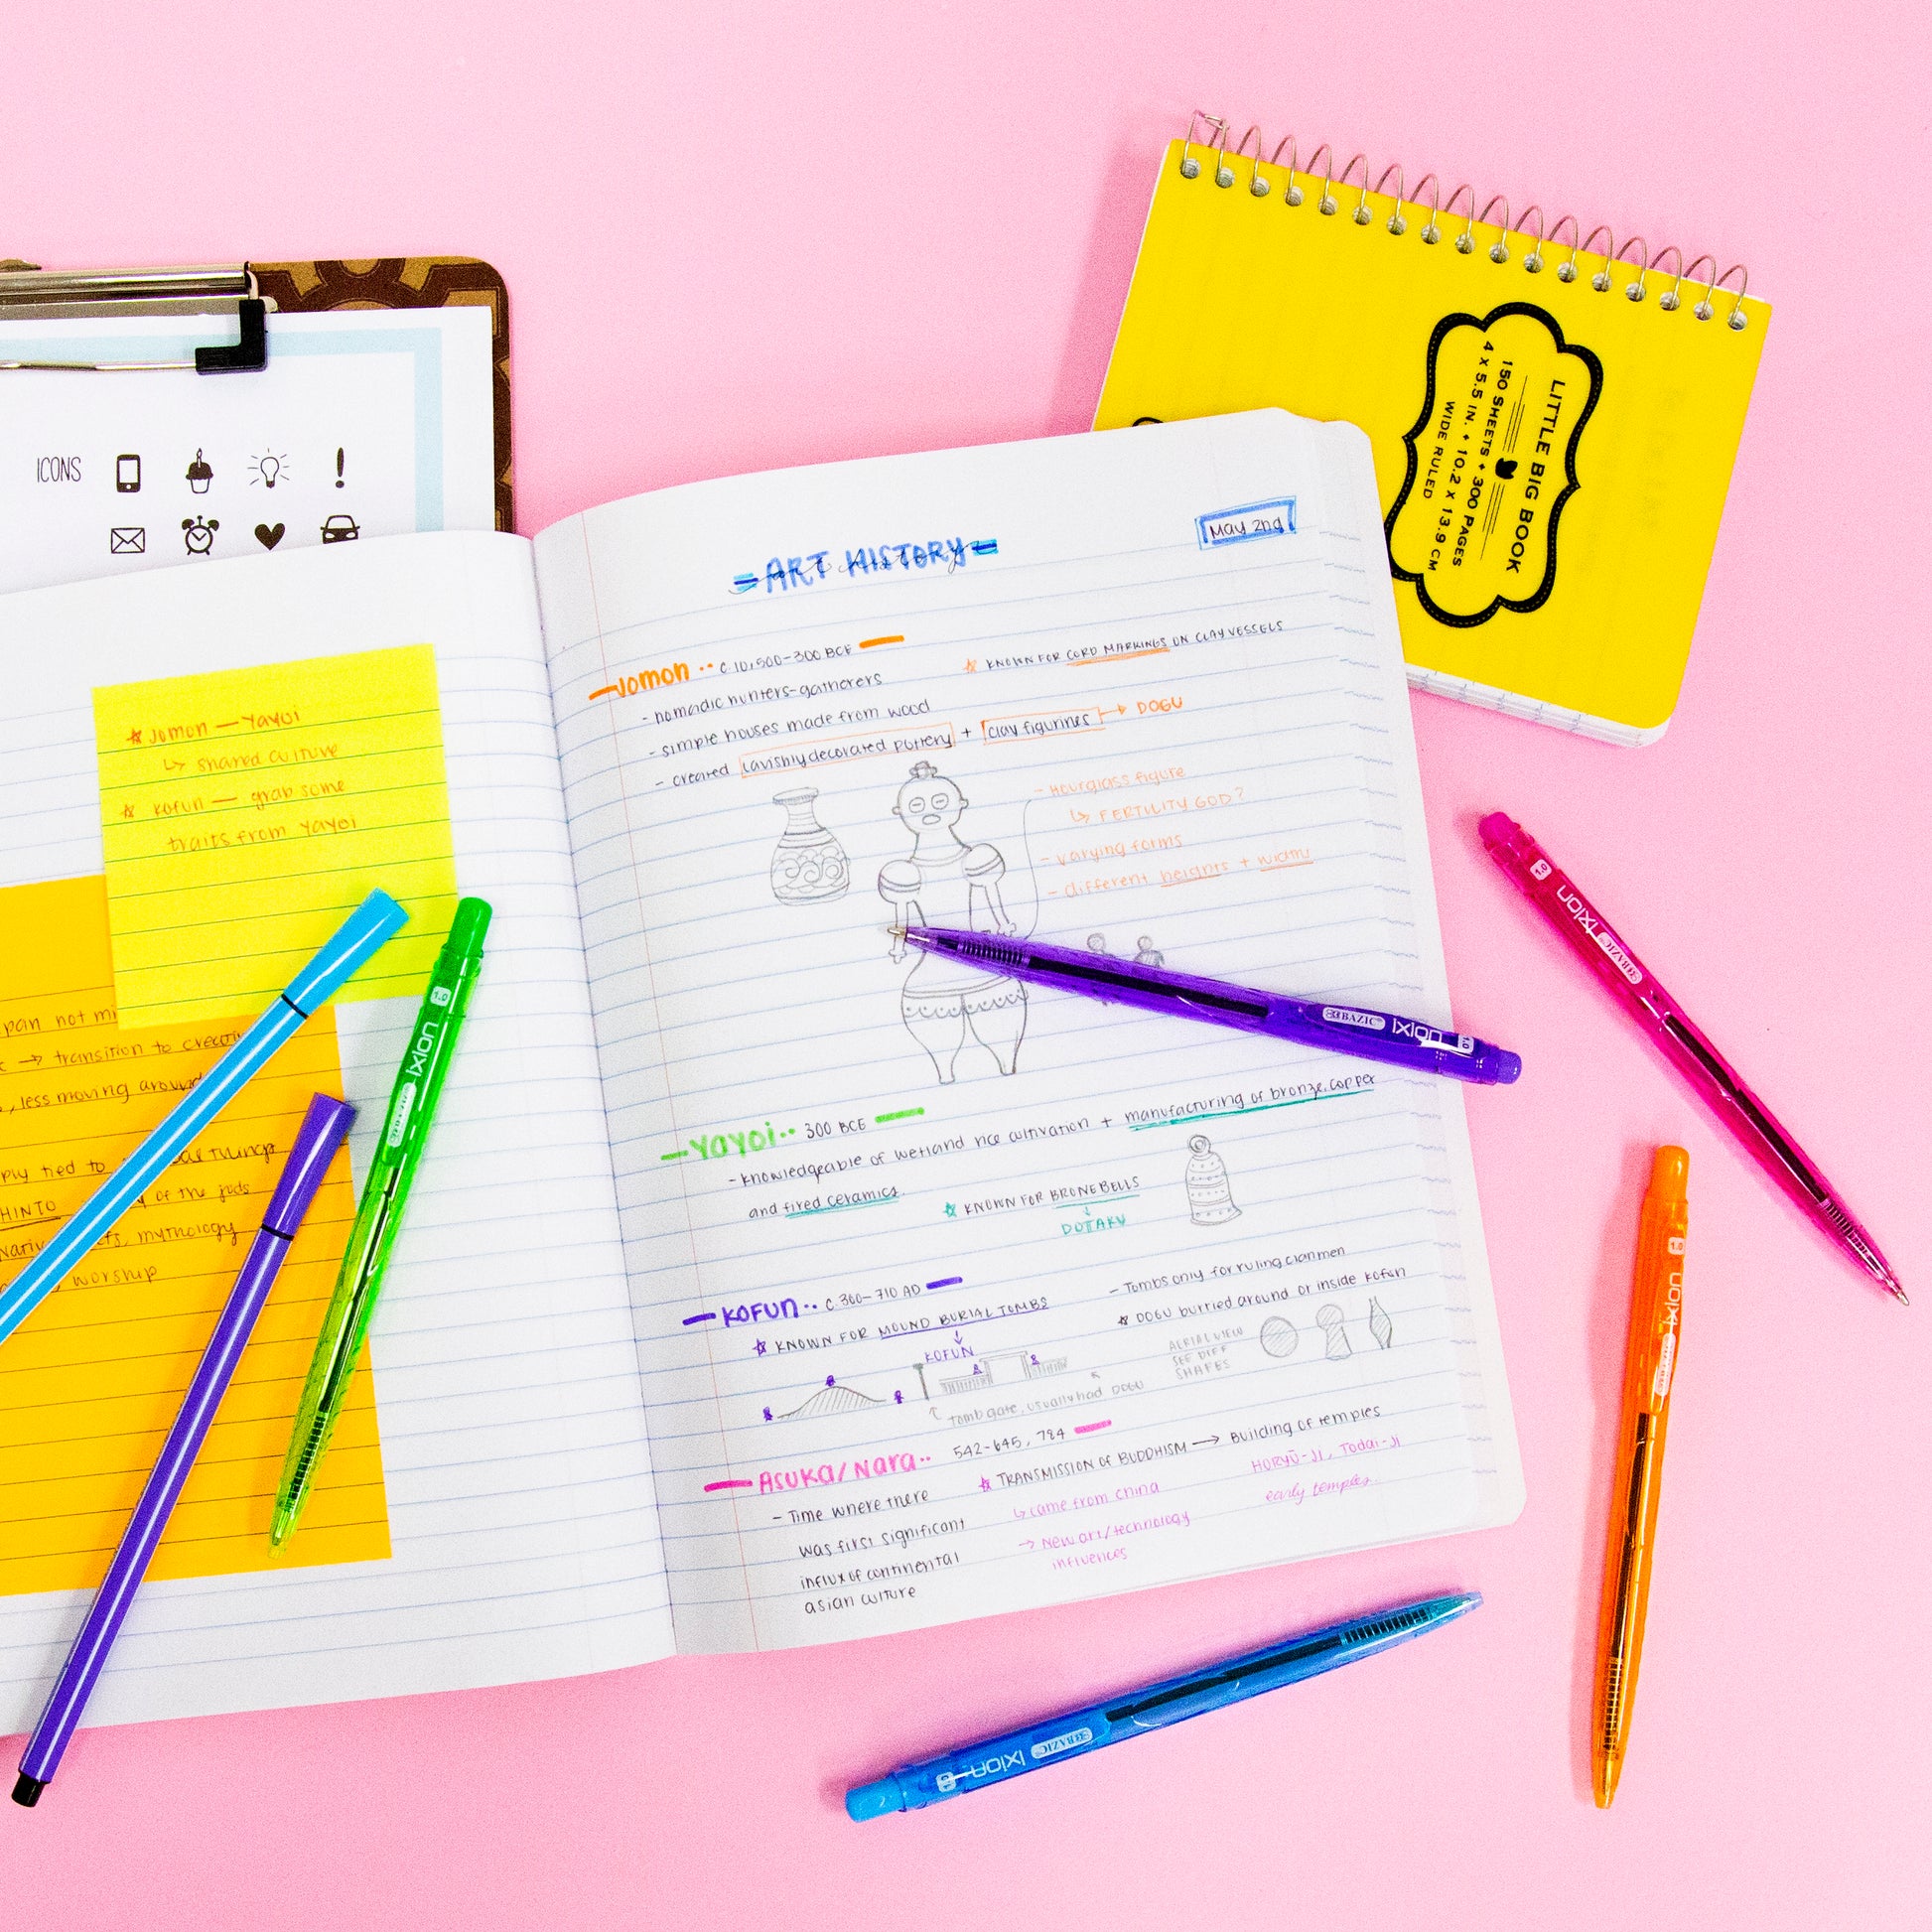 ICONS
LITTLE BIG BOOK
150 SHEETS + 300 PAGES
4 X 5.5 IN. + 10.2 X 13.9 CM
WIDE RULED
ART HISTORY
art history
May 2nd
Jomon -- C. 10,500-300 BCE
☆ KNOWN FOR CORD MARKINGS ON CLAY VESSELS
- nomadic hunters-gatherers
- simple houses made from wood
- created lavishly decorated pottery + clay figurines → DOGU
- Hourglass figure
↳ FERTILITY GOD?
- varying forms
- different heights + widths
Yayoi -- 300 BCE
- knowledgeable of wetland rice cultivation + manufacturing of bronze, copper
and fired ceramics
☆ KNOWN FOR BRONE BELLS
↓
DOTAKU
KOFUN -- C. 300-710 AD
☆ KNOWN FOR MOUND BURIAL TOMBS
↓
KOFUN
- Tombs only for ruling clanmen
☆ DOGU burried around or inside Kofun
AERIAL VIEW
SEE DIFF
SHAPES
Tomb gate, usually had DOGU
Asuka/Nara -- 542-645, 784
- Time where there
was first significant
influx of continental
asian culture
☆ TRANSMISSION OF BUDDHISM → Building of temples
↳ came from China
→ New art/technology
influences
HORYŪ-JI, Todai-Ji
early temples.
☆ Jomon — Yayoi
↳ shared culture
☆ Kofun — grab some
traits from Yayoi
pan not
→ transition to
, less moving around
ply tied to
HINTO of the gods
mythology
worship
BAZIC ixion 1.0
BAZIC ixion 1.0
BAZIC ixion 1.0
BAZIC ixion 1.0
BAZIC ixion